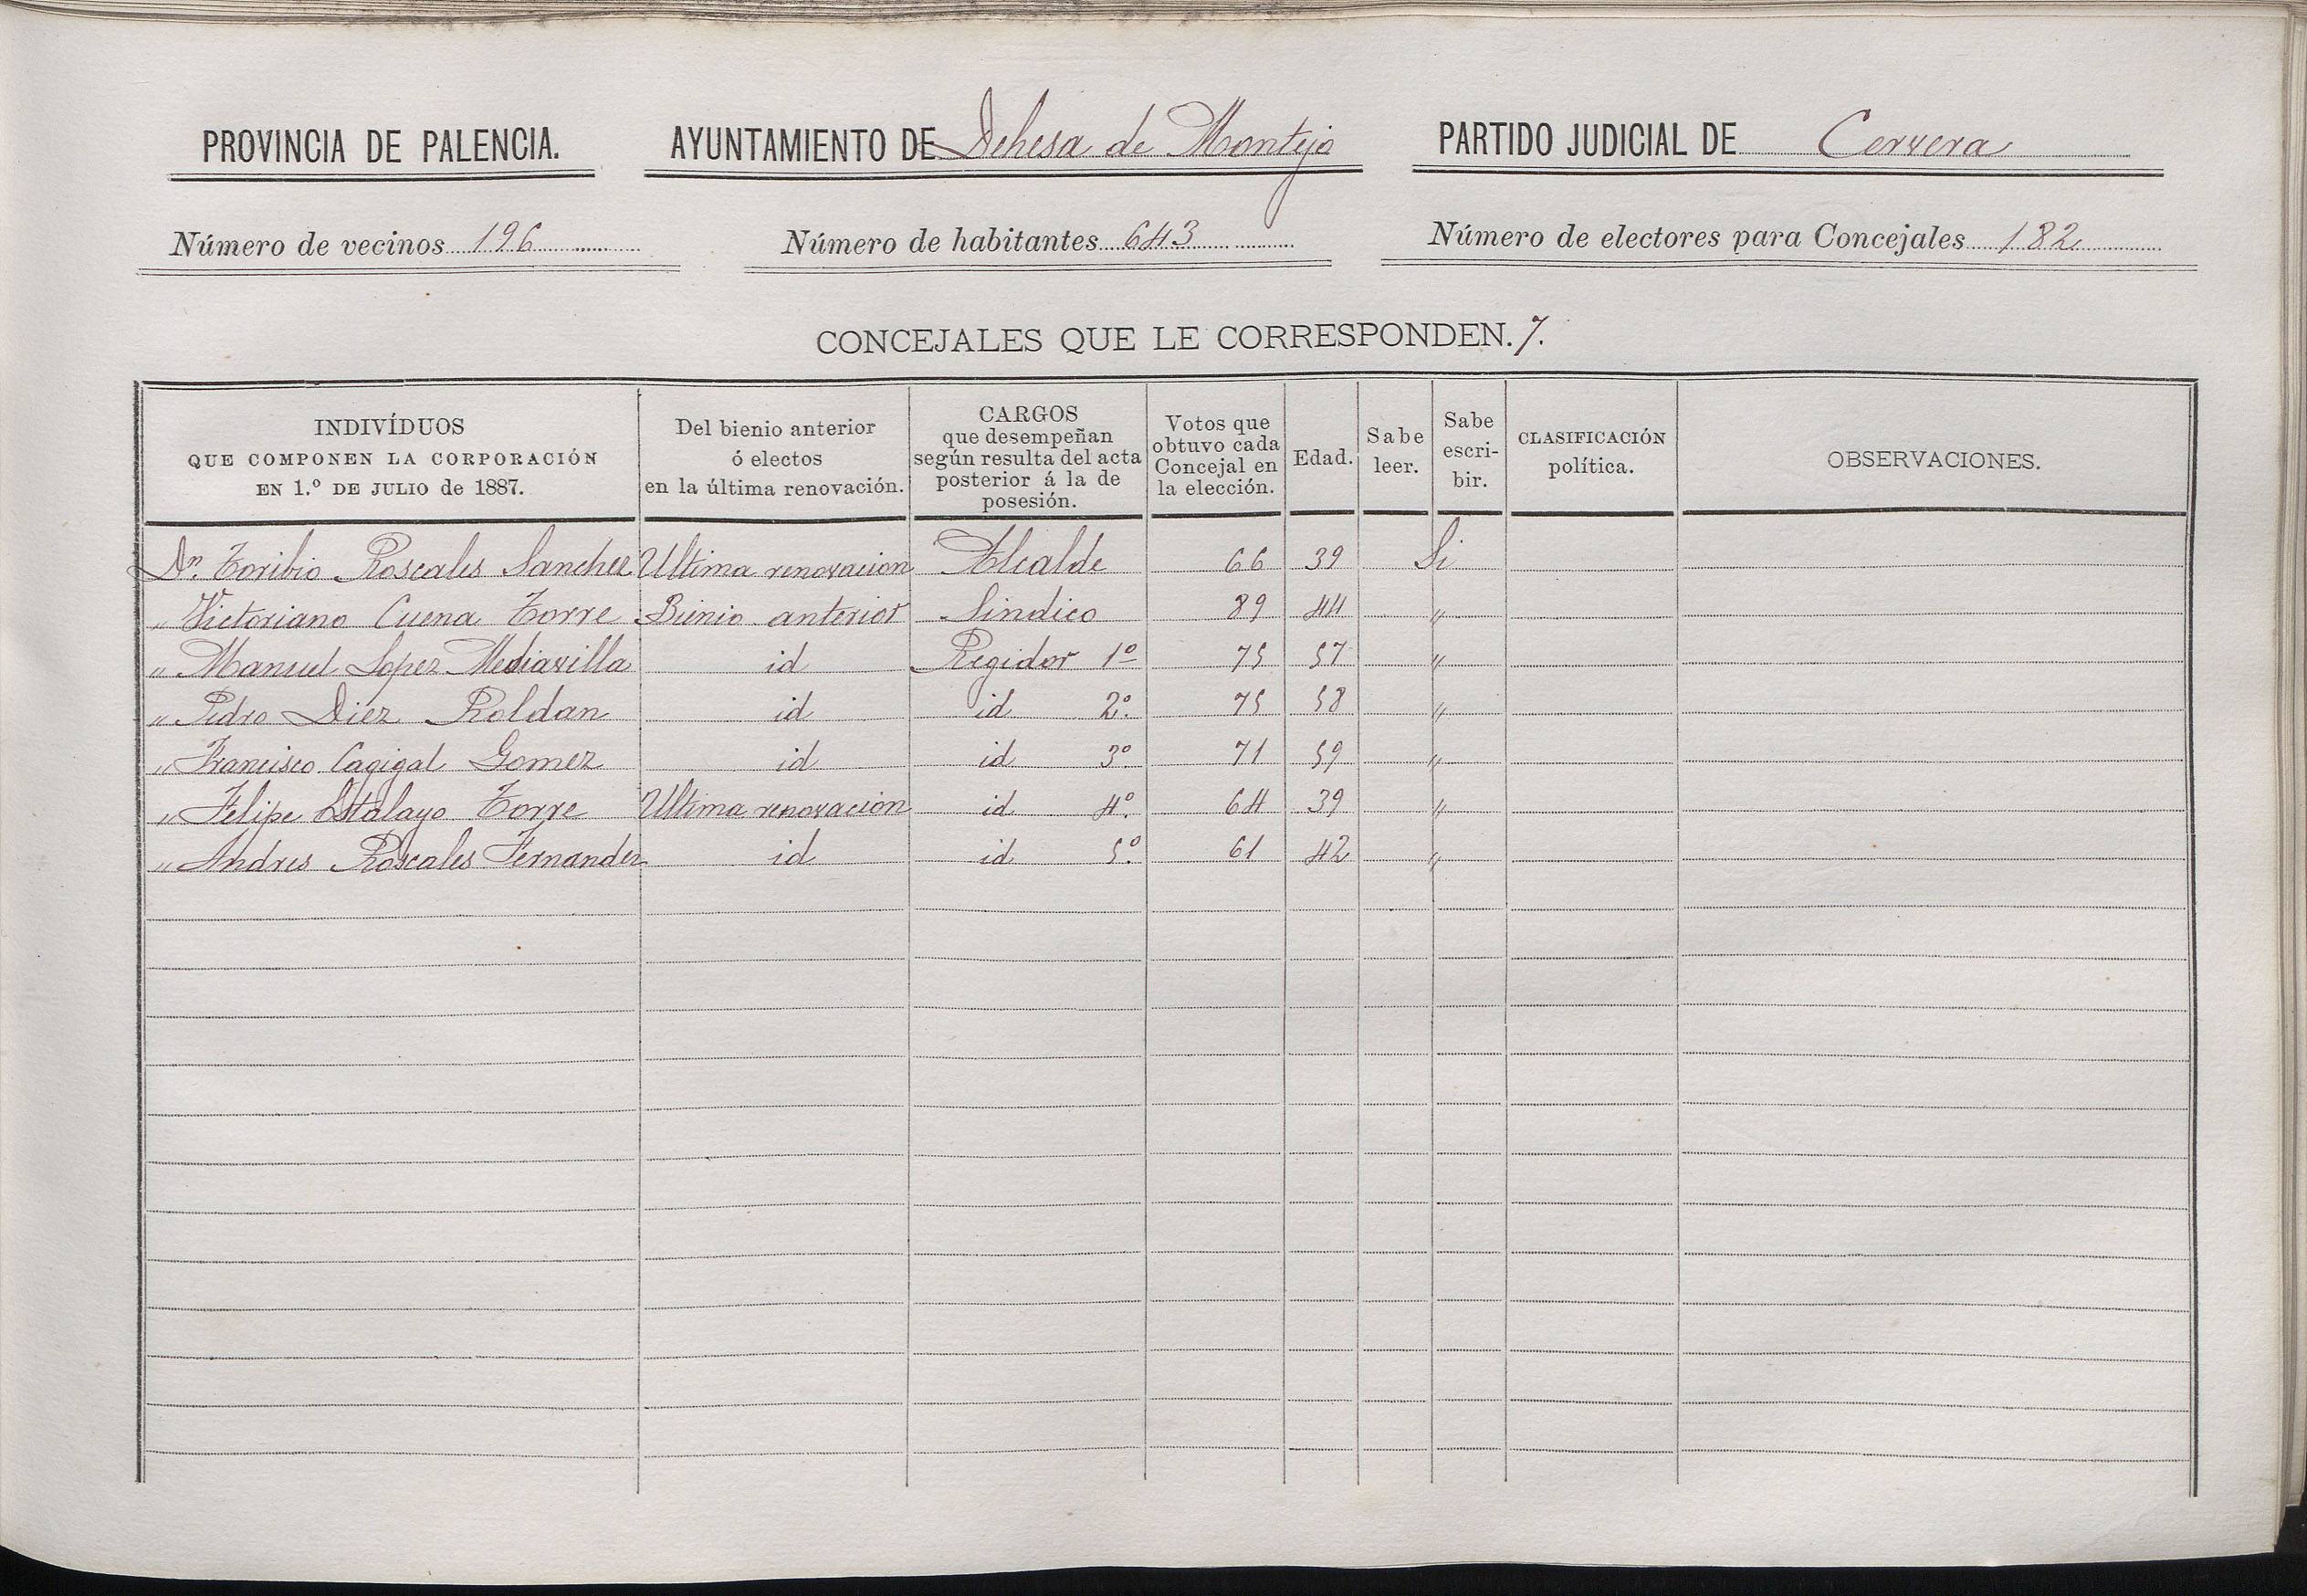 PROVINCIA DE PALENCIA. AYUNTAMIENTO DE Dehesa de Montejo PARTIDO JUDICIAL DE Cervera
Número de vecinos 196 Número de habitantes 643 Número de electores para Concejales 182
CONCEJALES QUE LE CORRESPONDEN. 7.
INDIVÍDUOS QUE COMPONEN LA CORPORACIÓN EN 1.º DE JULIO de 1887. Del bienio anterior ó electos en la última renovación. CARGOS que desempeñan según resulta del acta posterior á la de posesión. Votos que obtuvo cada Concejal en la elección. Edad. Sabe leer. Sabe escribir. CLASIFICACIÓN política. OBSERVACIONES.
Dn. Toribio Roscales Sanchez Ultima renovacion Alcalde 66 39 Si
" Victoriano Cuena Torre Bienio anterior Sindico 89 44 "
" Manuel Lopez Mediavilla id Regidor 1º 75 57 "
" Pedro Diez Roldan id id 2º. 75 58 "
" Francisco Cagigal Gomez id id 3º. 71 59 "
" Felipe Estalayo Torre Ultima renovacion id 4º. 64 39 "
" Andres Roscales Fernandez id id 5º. 61 42 "